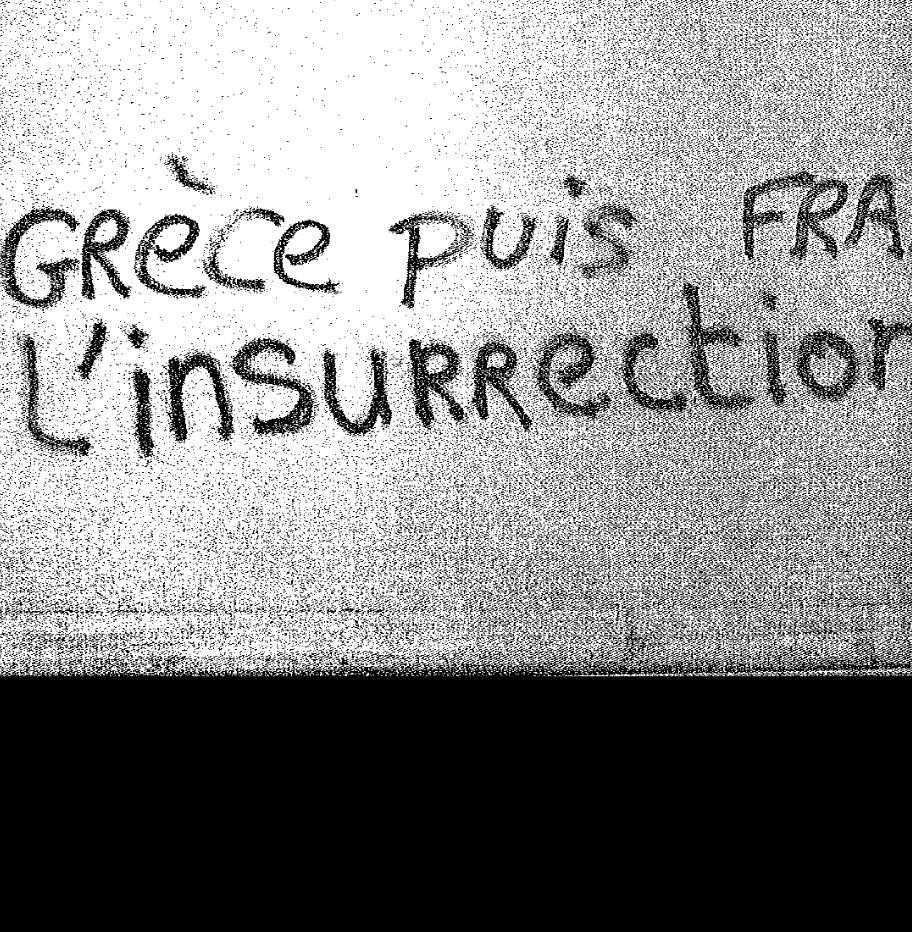 GRèce puis FRA
L'insuRRection